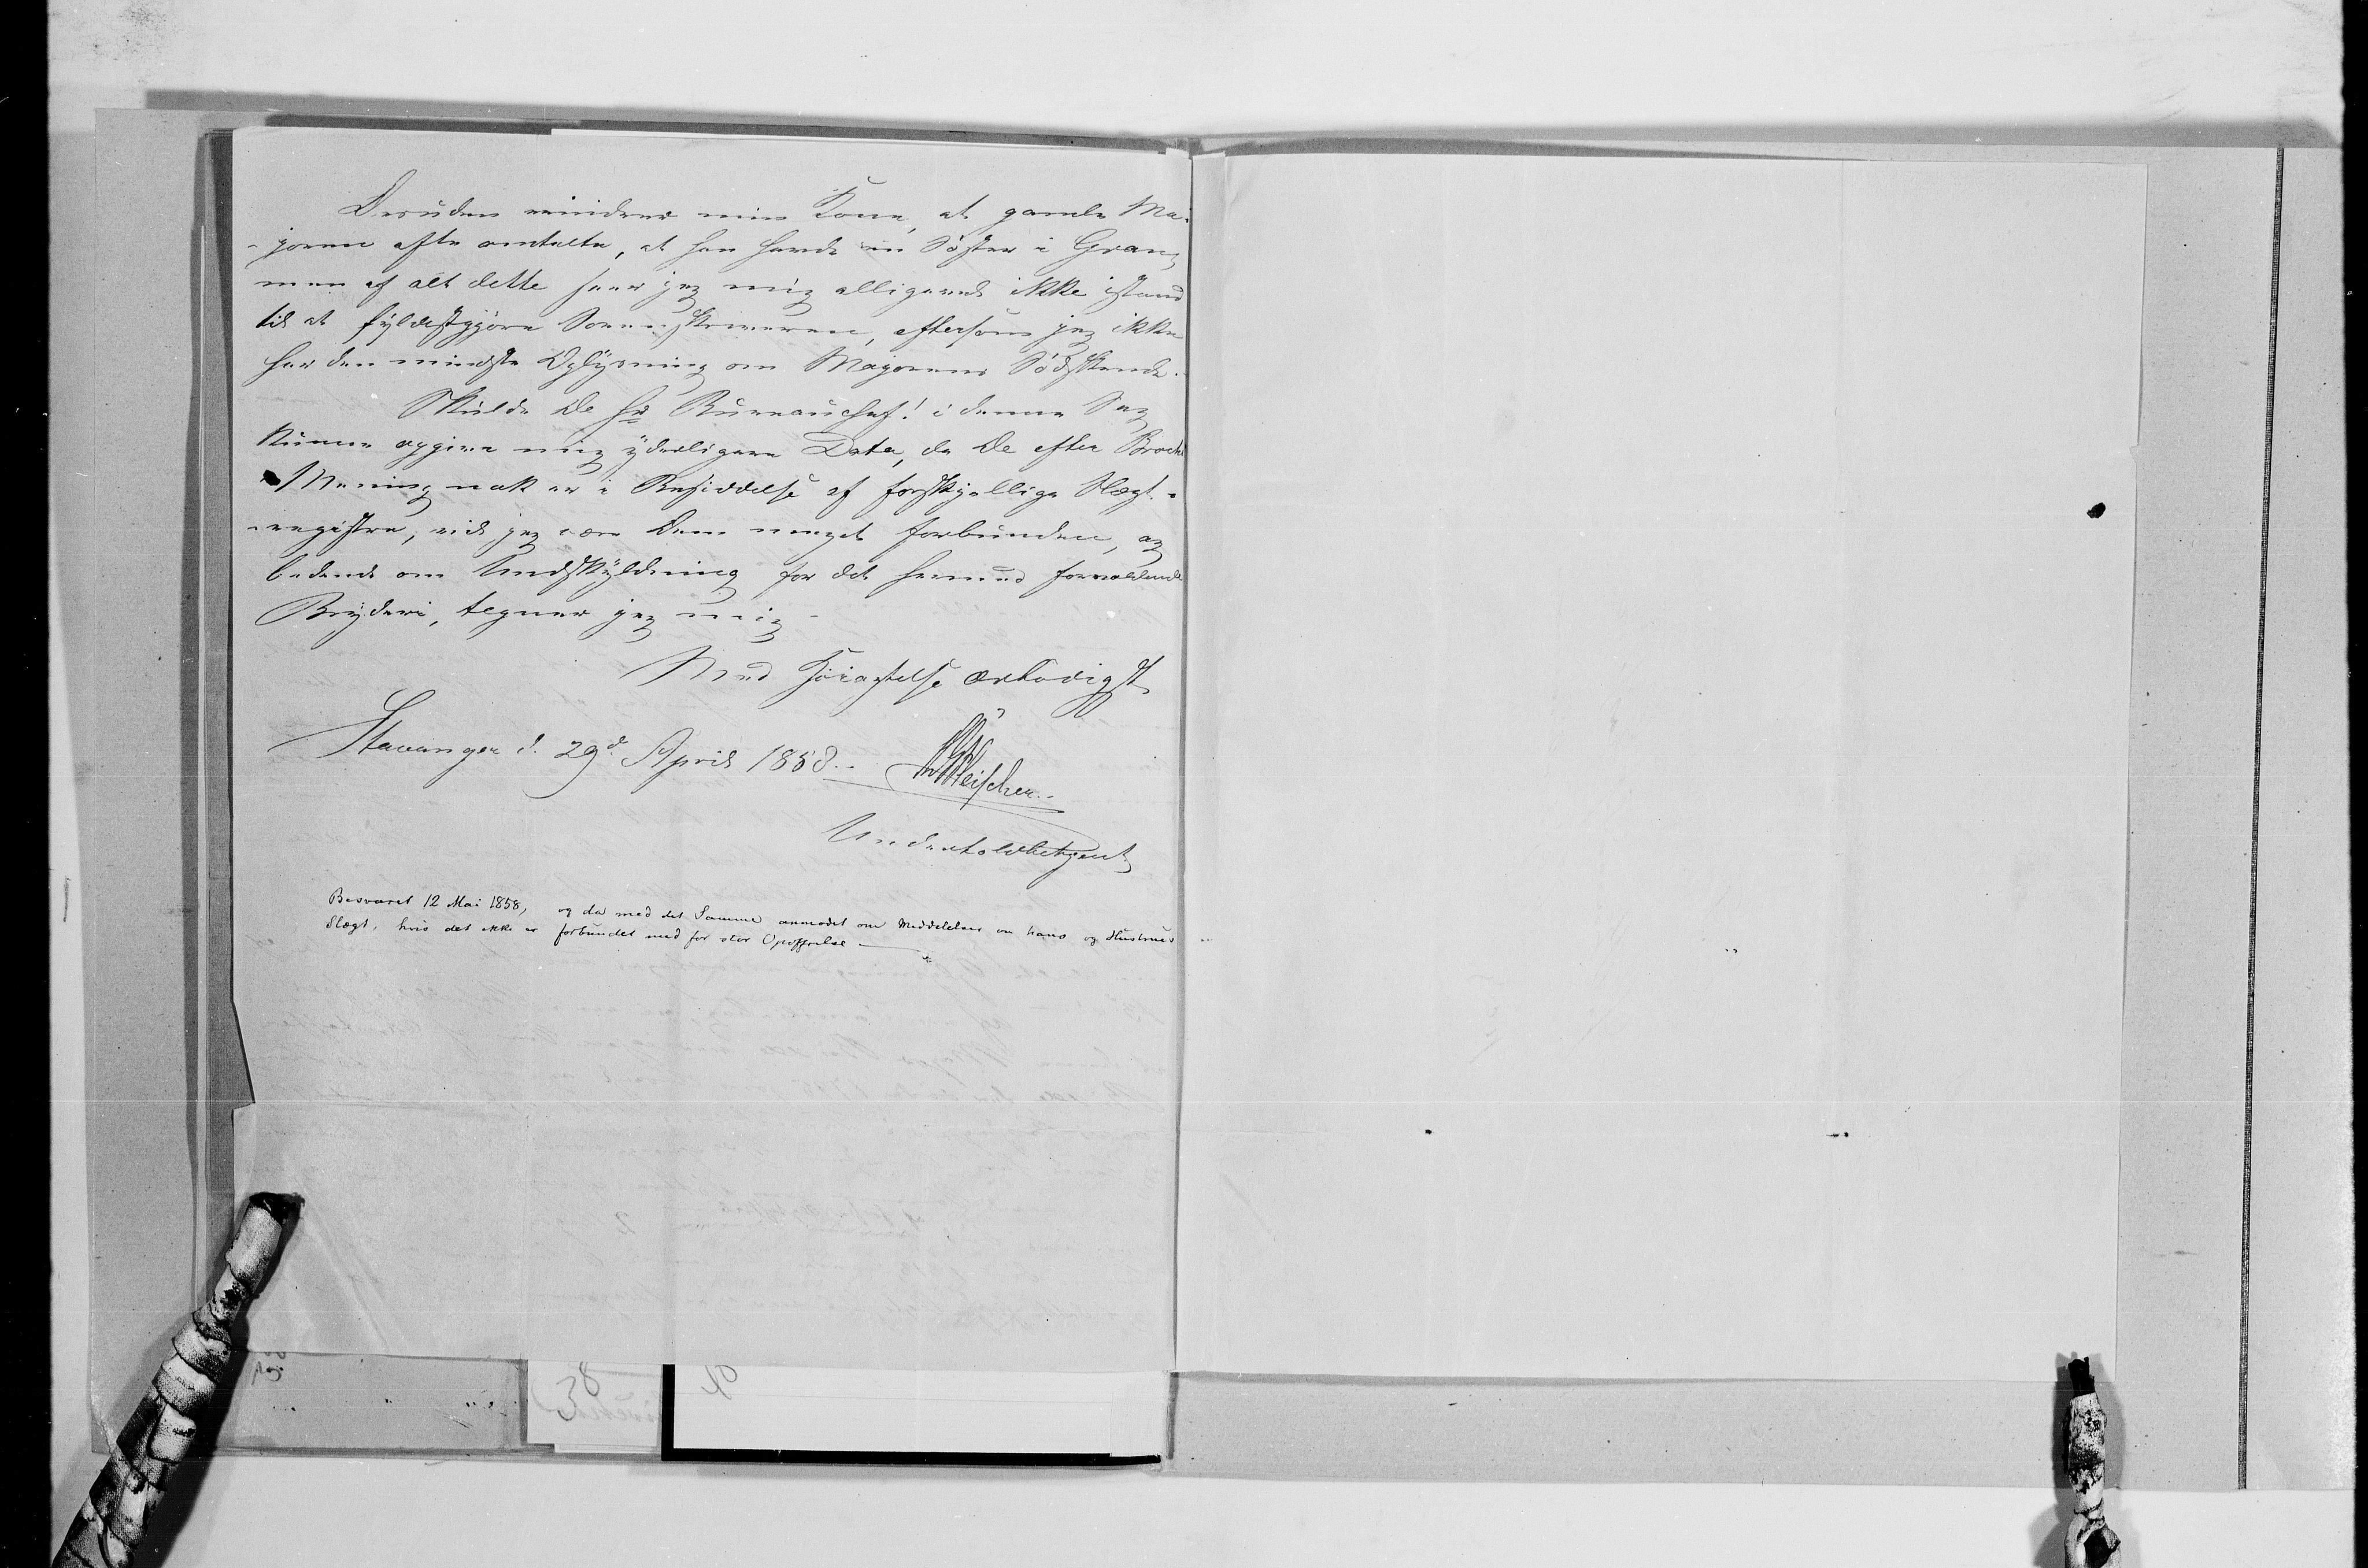 Desuden minder min Kone, at gamle Ma-
-joren ofte omtalte, at han havde en Søster i Gran,
men af alt dette seer jeg mig alligevel ikke istand
til at fyldestgjøre Sorenskriveren, eftersom jeg ikke
har den mindste Oplysning om Majorens Sødskende.
Skulde De Hr Bureauchef! i denne Sag
kunne opgive mig yderligere Data, da De efter Brochs
Mening nok er i Besiddelse af forskjellige Slægt-
-registre, vil jeg være Dem meget forbunden, og
bedende om Undskyldning for det herved forvoldende
Bryderi, tegner jeg mig
Med Høiagtelse ærbødigst
Stavanger d. 29d April 1858.
Fleischer.
Undertoldbetjent
Besvaret 12 Mai 1858, og da med det Samme anmodet om Meddelelser om hans og Hustrues
Slægt, hvis det ikke er forbundet med for stor Opoffrelse